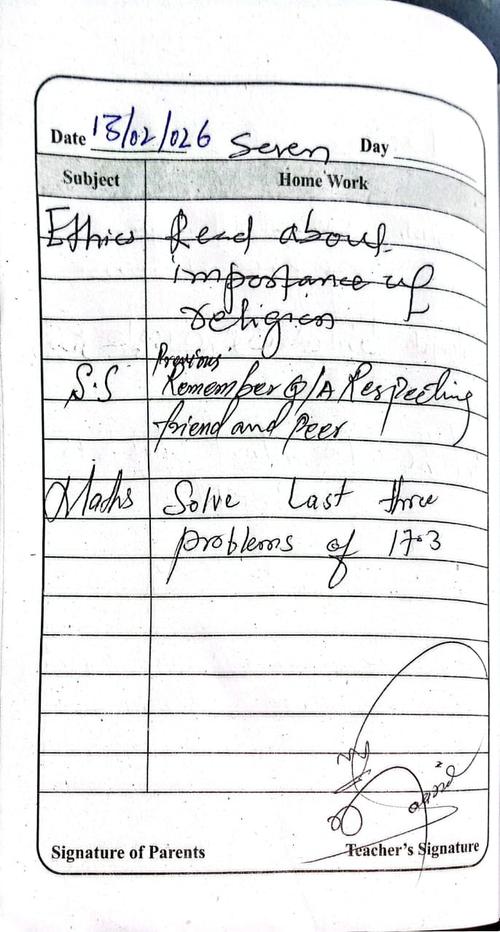 Date 13/02/026 Seven Day
Subject Home Work
Ethics Read about
importance of
religion
Previous
S.S Remember Q/A Respecting
friend and Peer
Maths Solve Last three
problems of 17.3
Signature of Parents Teacher's Signature